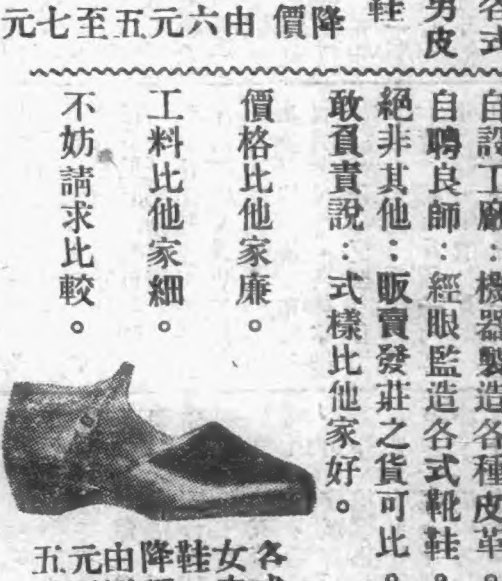 各式
男皮
鞋
降價
由六元五至七元
自設工廠：機器製造各種皮革。
自聘良師：經眼監造各式靴鞋。
絕非其他：販賣發莊之貨可比。
敢負責說：式樣比他家好。
價格比他家廉。
工料比他家細。
不妨請求比較。
各
女
鞋
降
由
元
五